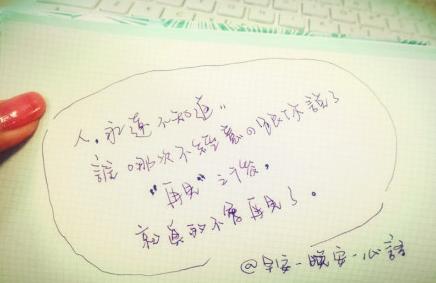 人。永遠不知道"
誰の哪次不經意の跟你說了
"再見"之後,
就真的不會再見了。
@早安-晚安-心語